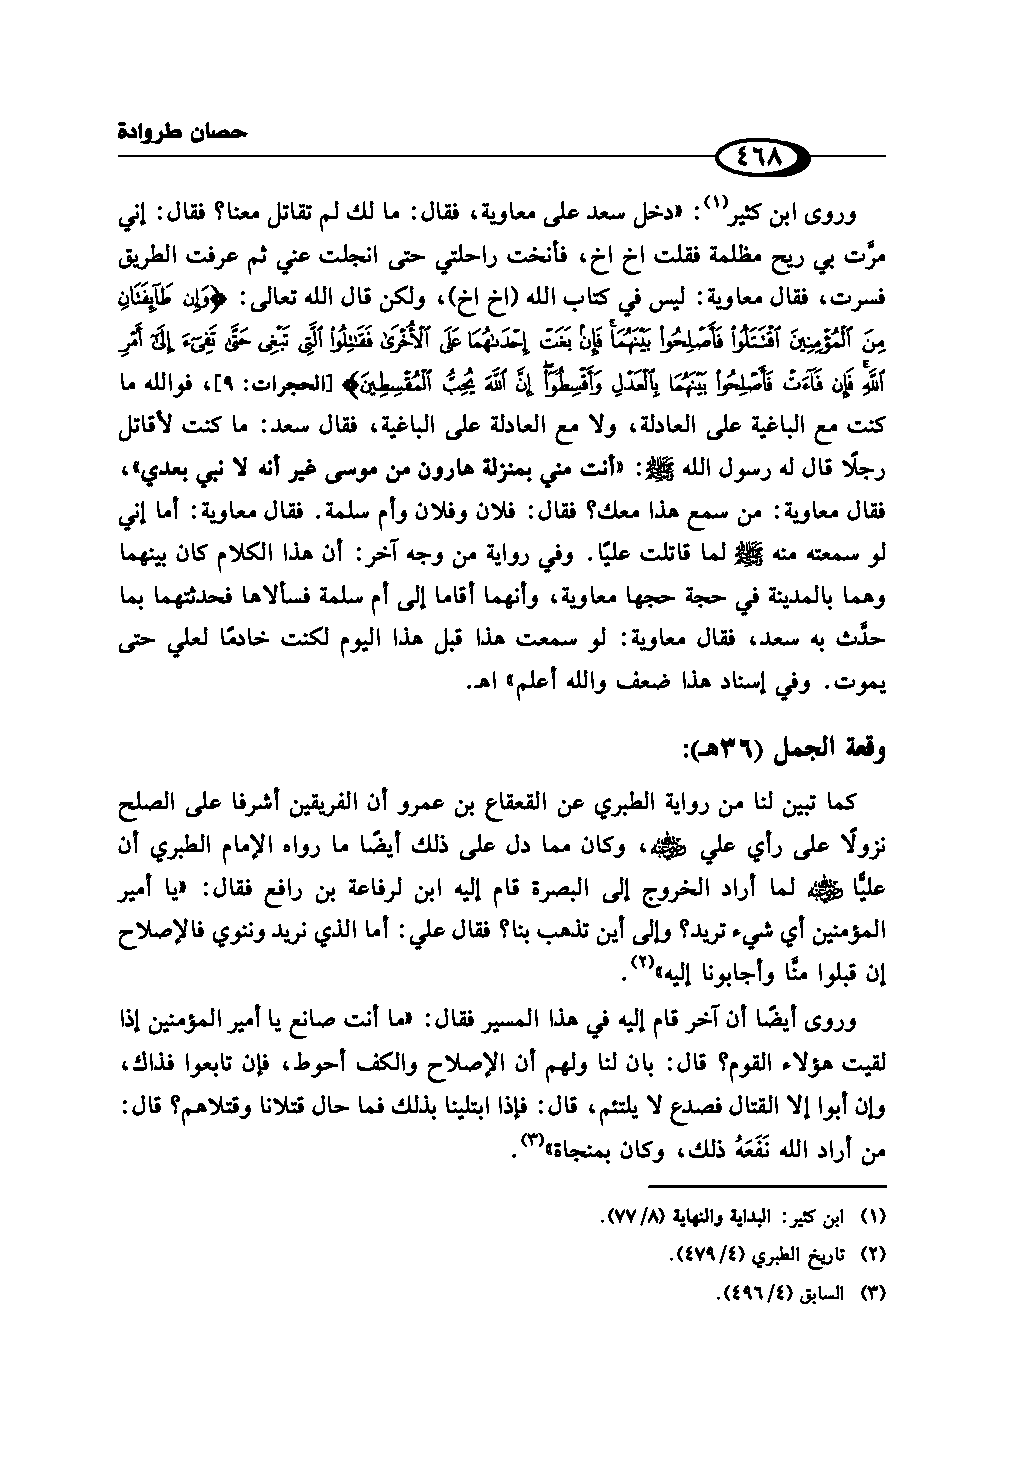 حصان طروادة
٤٦٨
وروى ابن كثير(١): «دخل سعد على معاوية، فقال: ما لك لم تقاتل معنا؟ فقال: إني
مرَّت بي ريح مظلمة فقلت اخ اخ، فأنخت راحلتي حتى انجلت عني ثم عرفت الطريق
فسرت، فقال معاوية: ليس في كتاب الله (اخ اخ)، ولكن قال الله تعالى: ﴿وَإِن طَآئِفَتَانِ
مِنَ ٱلْمُؤْمِنِينَ ٱقْتَتَلُوا۟ فَأَصْلِحُوا۟ بَيْنَهُمَا ۖ فَإِنۢ بَغَتْ إِحْدَىٰهُمَا عَلَى ٱلْأُخْرَىٰ فَقَٰتِلُوا۟ ٱلَّتِى تَبْغِى حَتَّىٰ تَفِىٓءَ إِلَىٰٓ أَمْرِ
ٱللَّهِ ۚ فَإِن فَآءَتْ فَأَصْلِحُوا۟ بَيْنَهُمَا بِٱلْعَدْلِ وَأَقْسِطُوٓا۟ ۖ إِنَّ ٱللَّهَ يُحِبُّ ٱلْمُقْسِطِينَ﴾ [الحجرات: ٩]، فوالله ما
كنت مع الباغية على العادلة، ولا مع العادلة على الباغية، فقال سعد: ما كنت لأقاتل
رجلًا قال له رسول الله ﷺ: «أنت مني بمنزلة هارون من موسى غير أنه لا نبي بعدي»،
فقال معاوية: من سمع هذا معك؟ فقال: فلان وفلان وأم سلمة. فقال معاوية: أما إني
لو سمعته منه ﷺ لما قاتلت عليًا. وفي رواية من وجه آخر: أن هذا الكلام كان بينهما
وهما بالمدينة في حجة حجها معاوية، وأنهما أقاما إلى أم سلمة فسألاها فحدثتهما بما
حدَّث به سعد، فقال معاوية: لو سمعت هذا قبل هذا اليوم لكنت خادمًا لعلي حتى
يموت. وفي إسناد هذا ضعف والله أعلم» اهـ.
وقعة الجمل (٣٦هـ):
كما تبين لنا من رواية الطبري عن القعقاع بن عمرو أن الفريقين أشرفا على الصلح
نزولًا على رأي علي رضي الله عنه، وكان مما دل على ذلك أيضًا ما رواه الإمام الطبري أن
عليًّا رضي الله عنه لما أراد الخروج إلى البصرة قام إليه ابن لرفاعة بن رافع فقال: «يا أمير
المؤمنين أي شيء تريد؟ وإلى أين تذهب بنا؟ فقال علي: أما الذي نريد وننوي فالإصلاح
إن قبلوا منَّا وأجابونا إليه»(٢).
وروى أيضًا أن آخر قام إليه في هذا المسير فقال: «ما أنت صانع يا أمير المؤمنين إذا
لقيت هؤلاء القوم؟ قال: بان لنا ولهم أن الإصلاح والكف أحوط، فإن تابعوا فذاك،
وإن أبوا إلا القتال فصدع لا يلتئم، قال: فإذا ابتلينا بذلك فما حال قتلانا وقتلاهم؟ قال:
من أراد الله نَفَعَهُ ذلك، وكان بمنجاة»(٣).
(١) ابن كثير: البداية والنهاية (٧٧/٨).
(٢) تاريخ الطبري (٤٧٩/٤).
(٣) السابق (٤٩٦/٤).